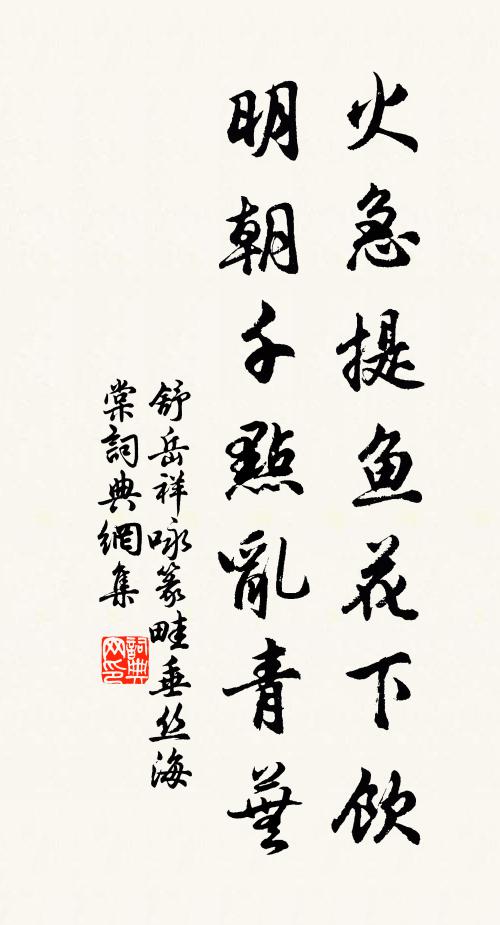 火急提鱼花下飲
明朝千點亂青蕪
舒岳祥咏篆畦垂丝海
棠詞典網集
詞典网印